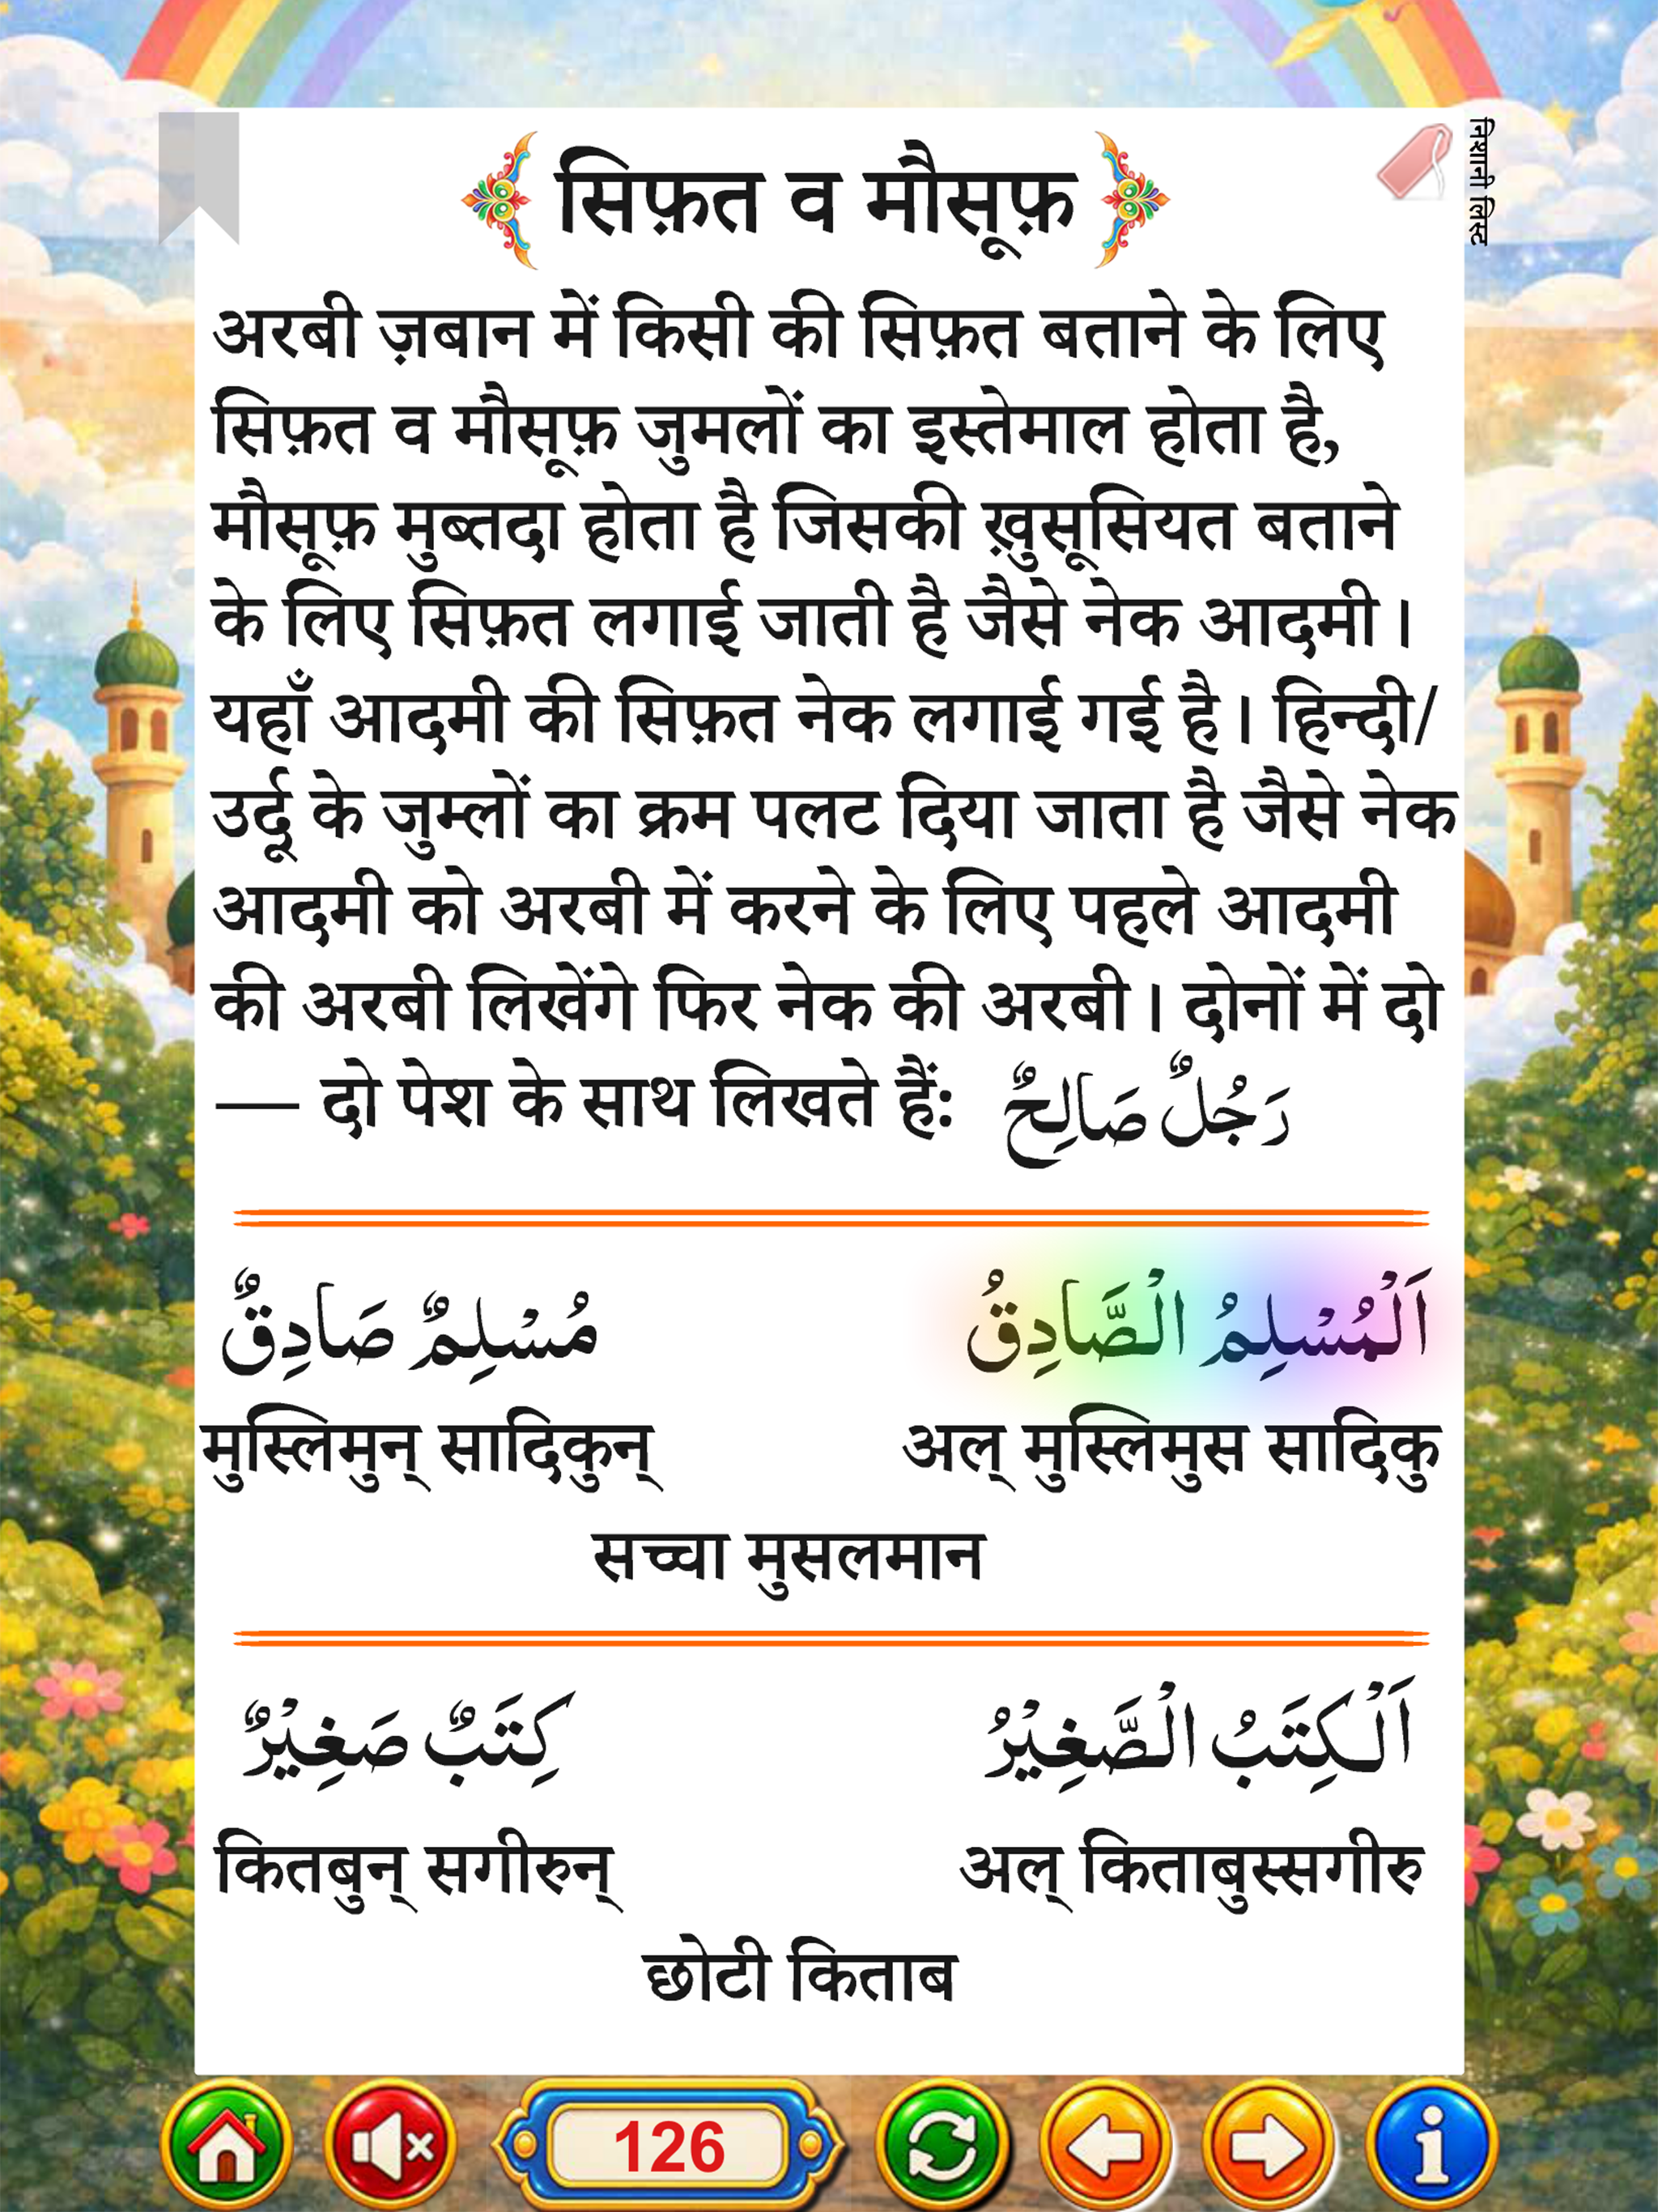 सिफ़त व मौसूफ़
निशानी लिस्ट
अरबी ज़बान में किसी की सिफ़त बताने के लिए
सिफ़त व मौसूफ़ जुमलों का इस्तेमाल होता है,
मौसूफ़ मुब्तदा होता है जिसकी ख़ुसूसियत बताने
के लिए सिफ़त लगाई जाती है जैसे नेक आदमी।
यहाँ आदमी की सिफ़त नेक लगाई गई है। हिन्दी/
उर्दू के जुम्लों का क्रम पलट दिया जाता है जैसे नेक
आदमी को अरबी में करने के लिए पहले आदमी
की अरबी लिखेंगे फिर नेक की अरबी। दोनों में दो
— दो पेश के साथ लिखते हैं: رَجُلٌ صَالِحٌ
مُسْلِمٌ صَادِقٌ اَلْمُسْلِمُ الْصَّادِقُ
मुस्लिमुन् सादिकुन् अल् मुस्लिमुस सादिकु
सच्चा मुसलमान
كِتَبٌ صَغِيْرٌ اَلْكِتَبُ الْصَّغِيْرُ
कितबुन् सगीरुन् अल् किताबुस्सगीरु
छोटी किताब
126